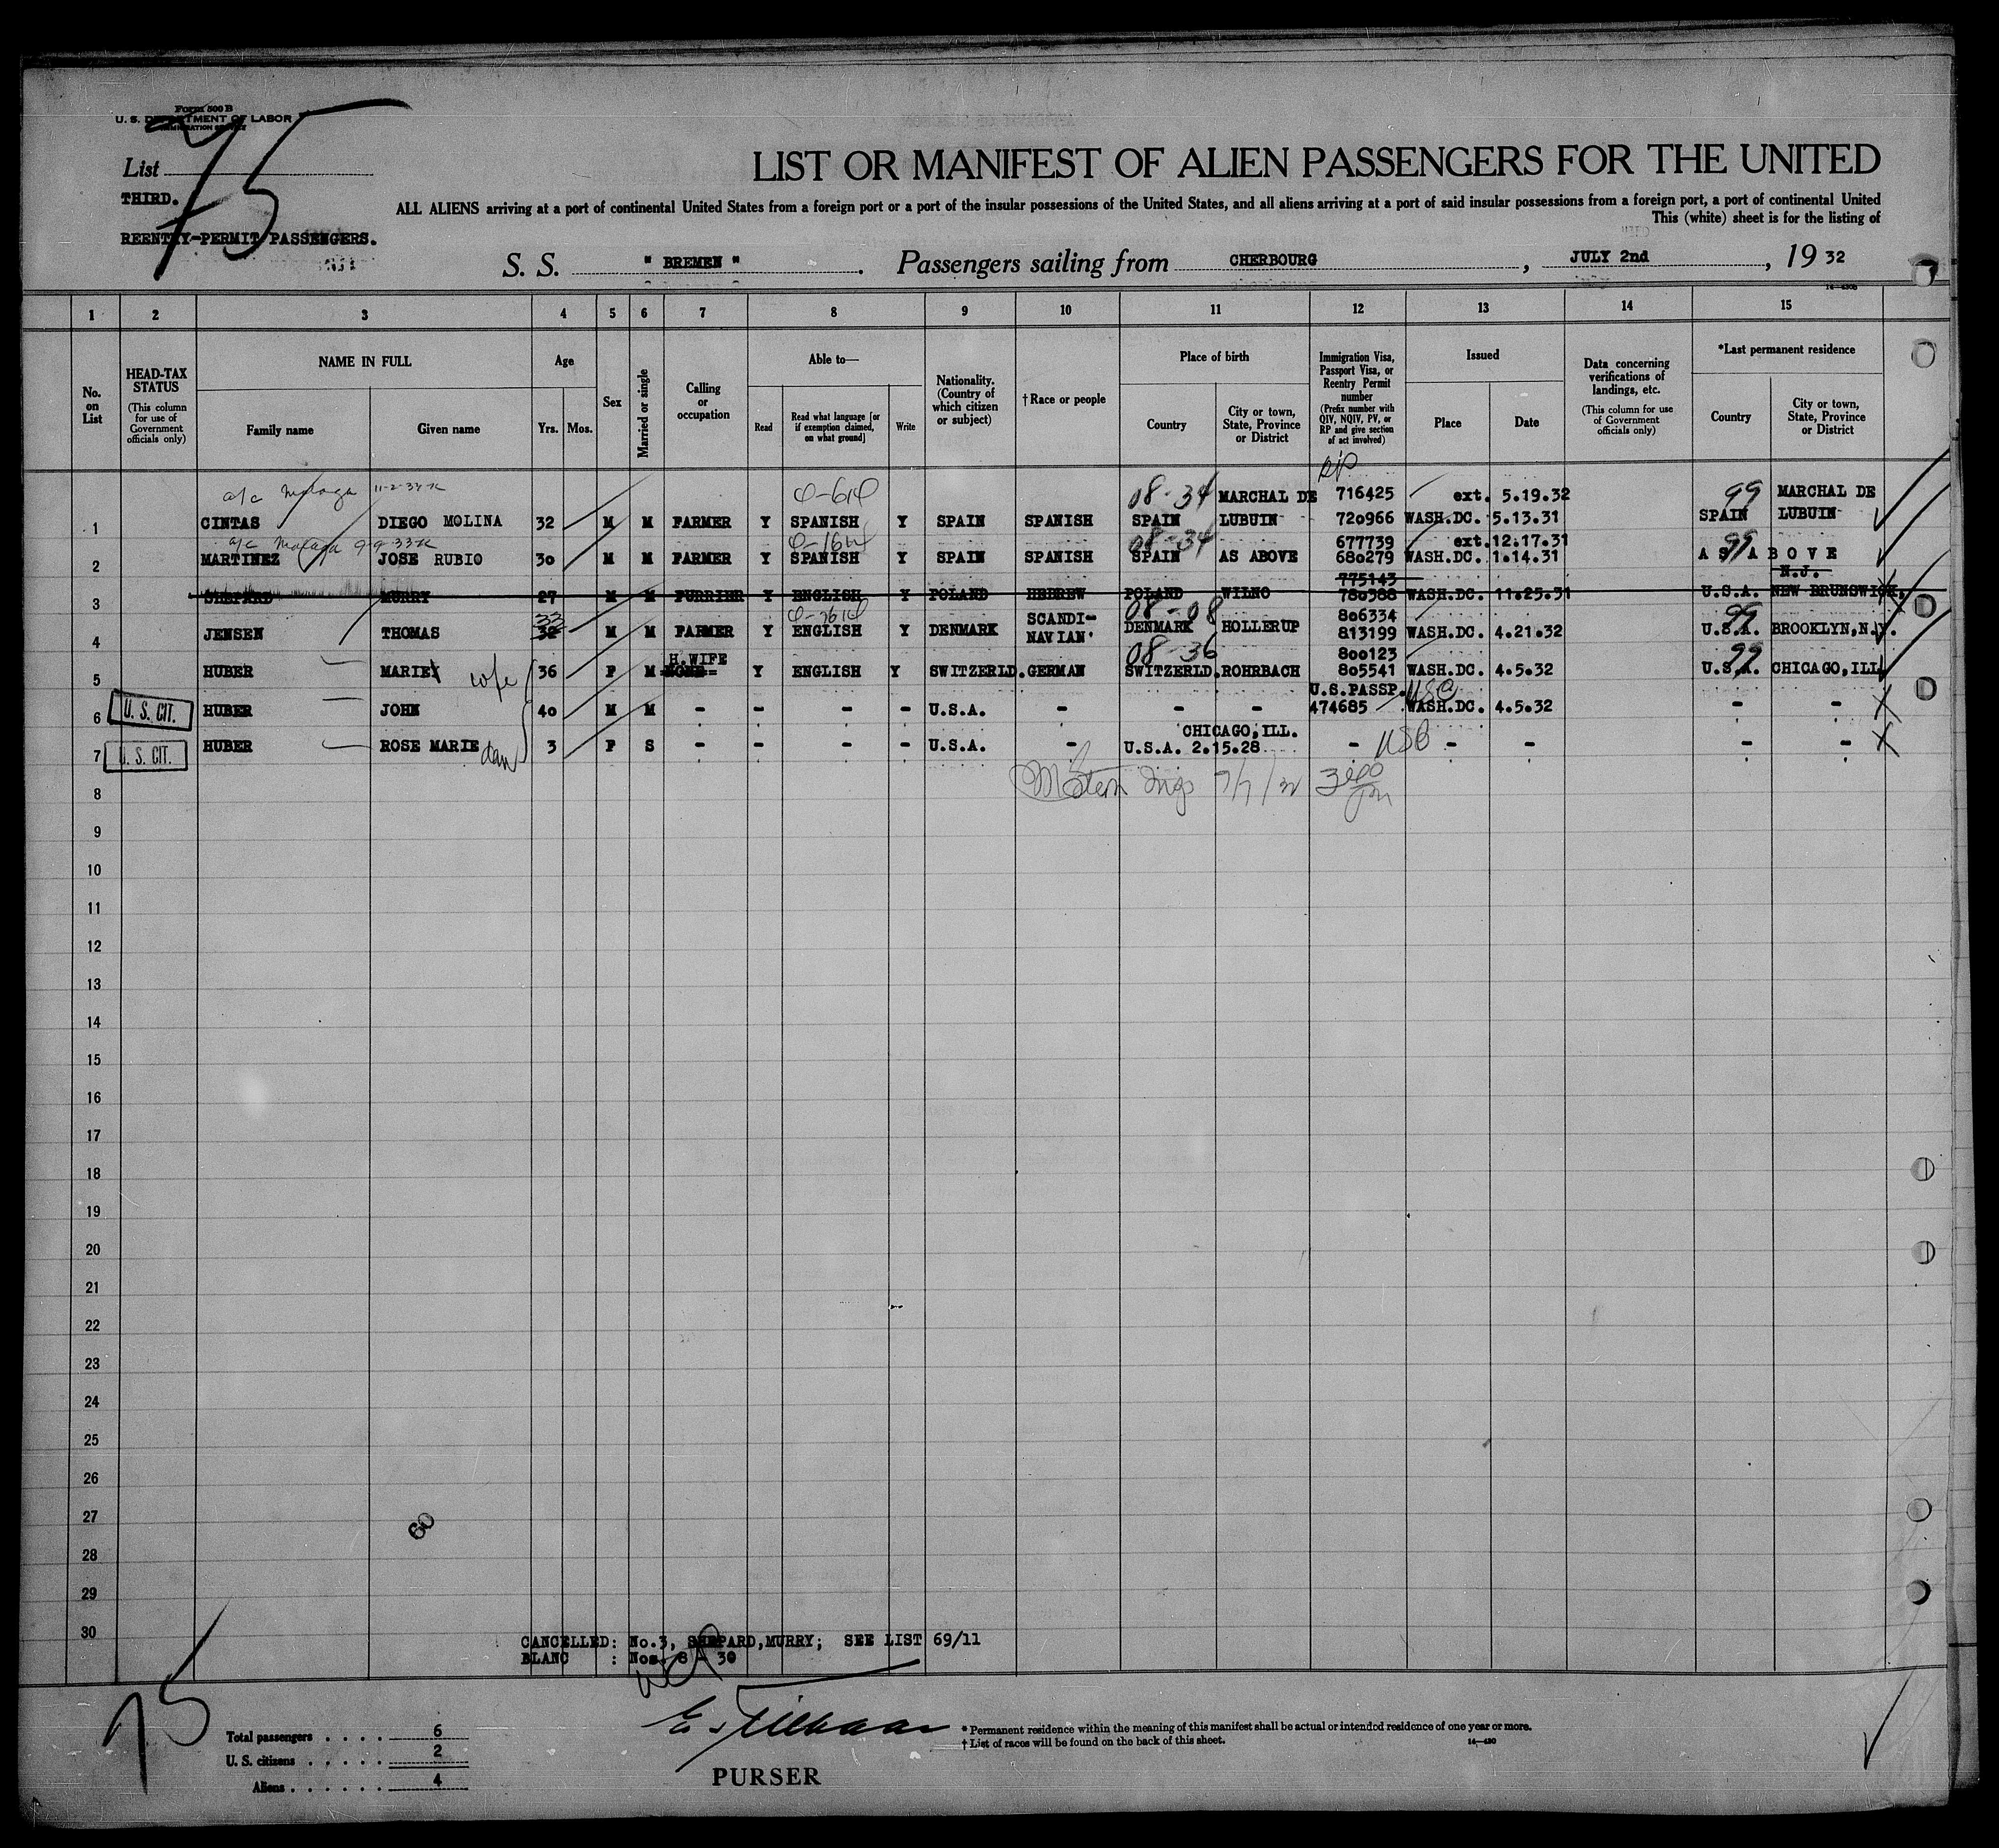 Form 500 B
U. S. DEPARTMENT OF LABOR
IMMIGRATION SERVICE
List 75
THIRD.
REENTRY-PERMIT PASSENGERS.
LIST OR MANIFEST OF ALIEN PASSENGERS FOR THE UNITED
ALL ALIENS arriving at a port of continental United States from a foreign port or a port of the insular possessions of the United States, and all aliens arriving at a port of said insular possessions from a foreign port, a port of continental United
This (white) sheet is for the listing of
S. S. " BREMEN " . Passengers sailing from CHERBOURG , JULY 2nd , 19 32
1 2 3 4 5 6 7 8 9 10 11 12 13 14 15
No. on List
HEAD-TAX STATUS (This column for use of Government officials only)
NAME IN FULL
Family name Given name
Age
Yrs. Mos.
Sex
Married or single
Calling or occupation
Able to—
Read Read what language [or if exemption claimed, on what ground] Write
Nationality. (Country of which citizen or subject)
†Race or people
Place of birth
Country City or town, State, Province or District
Immigration Visa, Passport Visa, or Reentry Permit number (Prefix number with QIV, NQIV, PV, or RP and give section of act involved)
Issued
Place Date
Data concerning verifications of landings, etc. (This column for use of Government officials only)
*Last permanent residence
Country City or town, State, Province or District
RP
a/c Malaga 11-2-33 08-34 MARCHAL DE 716425 ext. 5.19.32 99 MARCHAL DE
1 CINTAS DIEGO MOLINA 32 M M FARMER Y SPANISH Y SPAIN SPANISH SPAIN LUBUIN 720966 WASH.DC. 5.13.31 SPAIN LUBUIN
a/c Malaga 9-9-33 08-34 677739 ext.12.17.31 99
2 MARTINEZ JOSE RUBIO 30 M M FARMER Y SPANISH Y SPAIN SPANISH SPAIN AS ABOVE 680279 WASH.DC. 1.14.31 AS ABOVE
775143 N.J.
3 SHEPARD MURRY 27 M M FURRIER Y ENGLISH Y POLAND HEBREW POLAND WILNO 780388 WASH.DC. 11.25.31 U.S.A. NEW BRUNSWICK,
33 SCANDI- 08-08 806334 99
4 JENSEN THOMAS 32 M M FARMER Y ENGLISH Y DENMARK NAVIAN DENMARK HOLLERUP 813199 WASH.DC. 4.21.32 U.S.A. BROOKLYN,N.Y.
H.WIFE 08-36 800123 99
5 HUBER MARIE wife 36 F M NONE Y ENGLISH Y SWITZERLD. GERMAN SWITZERLD. ROHRBACH 805541 WASH.DC. 4.5.32 U.S.A. CHICAGO,ILL
U.S.PASSP. USC
6 U. S. CIT. HUBER JOHN 40 M M - - - - U.S.A. - - - 474685 WASH.DC. 4.5.32 - -
CHICAGO,ILL.
7 U. S. CIT. HUBER ROSE MARIE dau 3 F S - - - - U.S.A. - U.S.A. 2.15.28 - USB - - - -
8
9
10
11
12
13
14
15
16
17
18
19
20
21
22
23
24
25
26
27
60
28
29
30
CANCELLED: No.3, SHEPARD,MURRY; SEE LIST 69/11
BLANC : Nos. 8 - 30
75
Total passengers . . . . 6
U. S. citizens . . . . . 2
Aliens . . . . . . 4
PURSER
* Permanent residence within the meaning of this manifest shall be actual or intended residence of one year or more.
† List of races will be found on the back of this sheet.
14—430